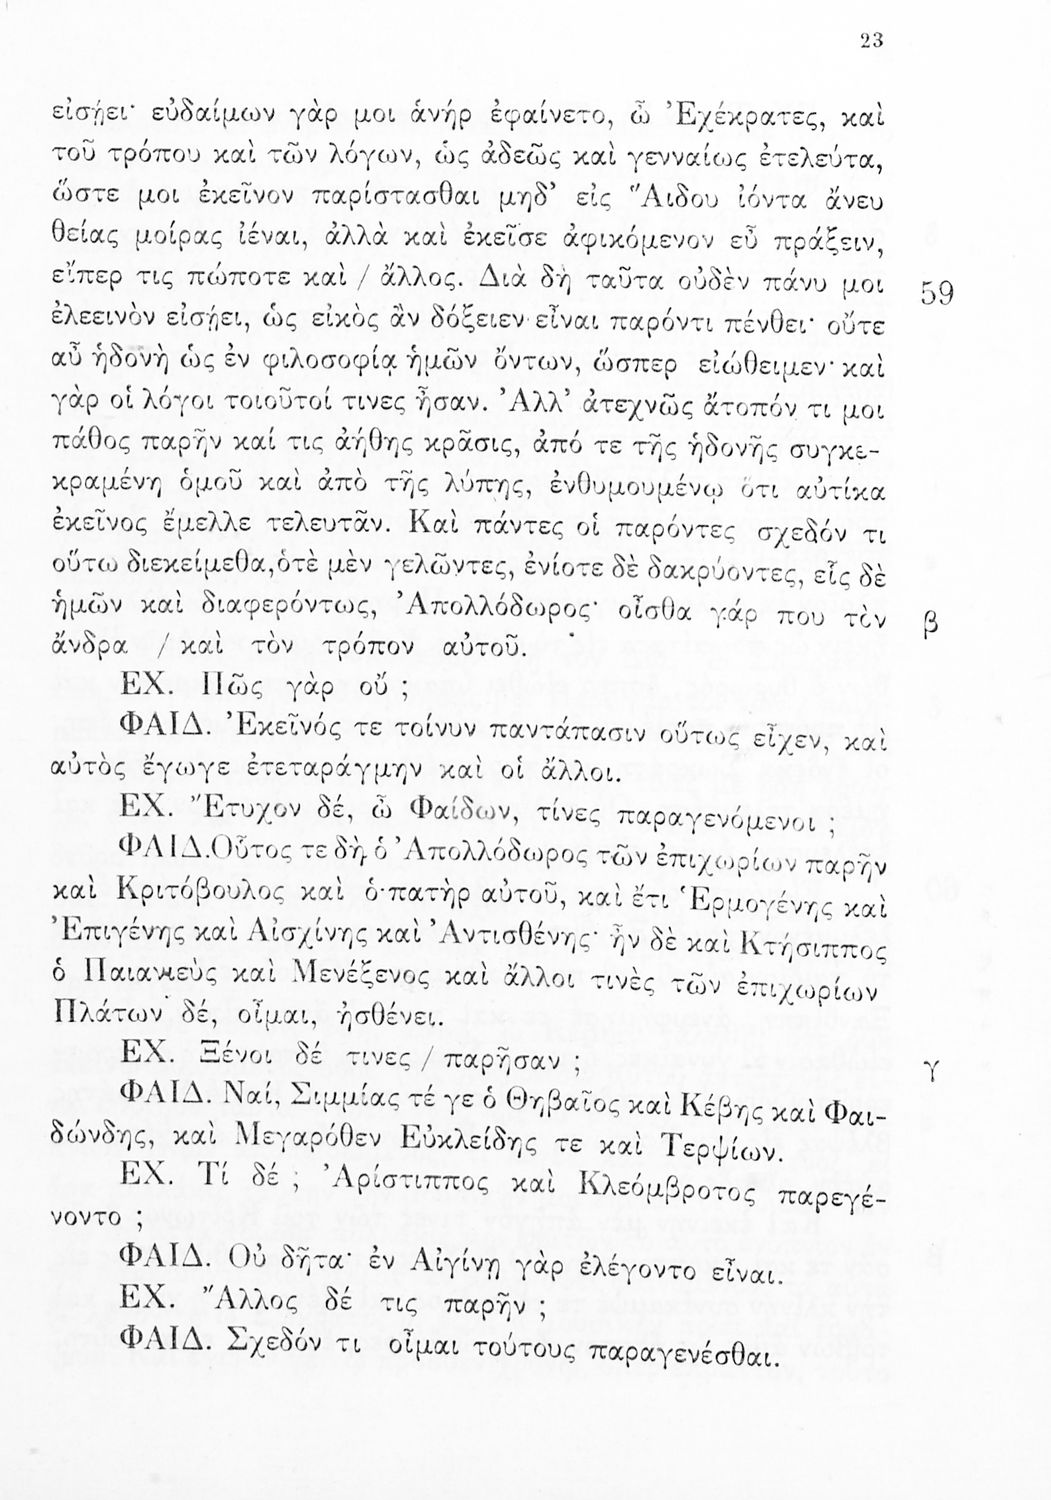 23
εἰσῄει· εὐδαίμων γάρ μοι ἁνὴρ ἐφαίνετο, ὦ Ἐχέκρατες, καὶ
τοῦ τρόπου καὶ τῶν λόγων, ὡς ἀδεῶς καὶ γενναίως ἐτελεύτα,
ὥστε μοι ἐκεῖνον παρίστασθαι μηδ’ εἰς Ἅιδου ἰόντα ἄνευ
θείας μοίρας ἰέναι, ἀλλὰ καὶ ἐκεῖσε ἀφικόμενον εὖ πράξειν,
εἴπερ τις πώποτε καὶ / ἄλλος. Διὰ δὴ ταῦτα οὐδὲν πάνυ μοι 59
ἐλεεινὸν εἰσῄει, ὡς εἰκὸς ἂν δόξειεν εἶναι παρόντι πένθει· οὔτε
αὖ ἡδονὴ ὡς ἐν φιλοσοφίᾳ ἡμῶν ὄντων, ὥσπερ εἰώθειμεν· καὶ
γὰρ οἱ λόγοι τοιοῦτοί τινες ἦσαν. Ἀλλ’ ἀτεχνῶς ἄτοπόν τι μοι
πάθος παρῆν καί τις ἀήθης κρᾶσις, ἀπό τε τῆς ἡδονῆς συγκε-
κραμένη ὁμοῦ καὶ ἀπὸ τῆς λύπης, ἐνθυμουμένῳ ὅτι αὐτίκα
ἐκεῖνος ἔμελλε τελευτᾶν. Καὶ πάντες οἱ παρόντες σχεδόν τι
οὕτω διεκείμεθα, ὁτὲ μὲν γελῶντες, ἐνίοτε δὲ δακρύοντες, εἷς δὲ
ἡμῶν καὶ διαφερόντως, Ἀπολλόδωρος· οἶσθα γάρ που τὸν β
ἄνδρα / καὶ τὸν τρόπον αὐτοῦ.
ΕΧ. Πῶς γὰρ οὔ ;
ΦΑΙΔ. Ἐκεῖνός τε τοίνυν παντάπασιν οὕτως εἶχεν, καὶ
αὐτὸς ἔγωγε ἐτεταράγμην καὶ οἱ ἄλλοι.
ΕΧ. Ἔτυχον δέ, ὦ Φαίδων, τίνες παραγενόμενοι ;
ΦΑΙΔ. Οὗτος τε δὴ ὁ Ἀπολλόδωρος τῶν ἐπιχωρίων παρῆν
καὶ Κριτόβουλος καὶ ὁ πατὴρ αὐτοῦ, καὶ ἔτι Ἑρμογένης καὶ
Ἐπιγένης καὶ Αἰσχίνης καὶ Ἀντισθένης· ἦν δὲ καὶ Κτήσιππος
ὁ Παιανιεὺς καὶ Μενέξενος καὶ ἄλλοι τινὲς τῶν ἐπιχωρίων
Πλάτων δέ, οἶμαι, ἠσθένει.
ΕΧ. Ξένοι δέ τινες / παρῆσαν ; γ
ΦΑΙΔ. Ναί, Σιμμίας τέ γε ὁ Θηβαῖος καὶ Κέβης καὶ Φαι-
δώνδης, καὶ Μεγαρόθεν Εὐκλείδης τε καὶ Τερψίων.
ΕΧ. Τί δέ ; Ἀρίστιππος καὶ Κλεόμβροτος παρεγέ-
νοντο ;
ΦΑΙΔ. Οὐ δῆτα· ἐν Αἰγίνῃ γὰρ ἐλέγοντο εἶναι.
ΕΧ. Ἄλλος δέ τις παρῆν ;
ΦΑΙΔ. Σχεδόν τι οἶμαι τούτους παραγενέσθαι.